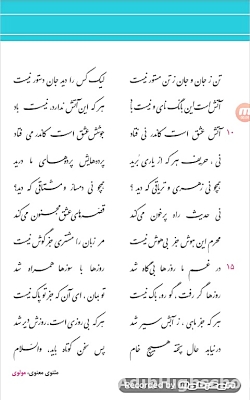 تن ز جان و جان ز تن مستور نیست لیک کس را دید جان دستور نیست
آتش است این بانگ نای و نیست باد! هر که این آتش ندارد، نیست باد
۱۰ آتش عشق است کاندر نی فتاد جوشش عشق است کاندر می فتاد
نی، حریف هر که از یاری برید پرده‌هایش پرده‌های ما درید
همچو نی زهری و تریاقی که دید؟ همچو نی دمساز و مشتاقی که دید؟
نی حدیث راه پر خون می‌کند قصه‌های عشق مجنون می‌کند
محرم این هوش جز بی‌هوش نیست مر زبان را مشتری جز گوش نیست
۱۵ در غم ما روزها بیگاه شد روزها با سوزها همراه شد
روزها گر رفت، گو رو، باک نیست تو بمان، ای آن که جز تو پاک نیست
هر که جز ماهی، ز آبش سیر شد هر که بی روزی است، روزش دیر شد
درنیابد حال پخته هیچ خام پس سخن کوتاه باید، والسلام
مثنوی معنوی، مولوی
Recorded by